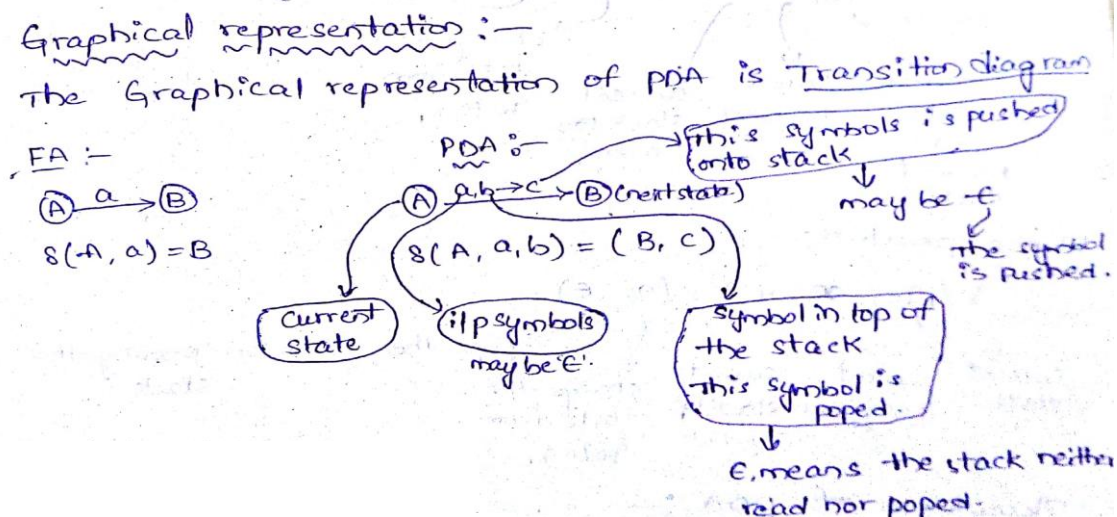 Graphical representation :-
The Graphical representation of PDA is Transition diagram
FA :-
A a B
δ(A, a) = B
PDA :-
A a,b → c B (next state.)
δ(A, a, b) = (B, c)
This symbols is pushed
onto stack
may be ε
The symbol
is pushed.
current
state
i/p symbols
may be 'ε'.
symbol in top of
the stack
This symbol is
poped.
ε, means the stack neither
read nor poped.